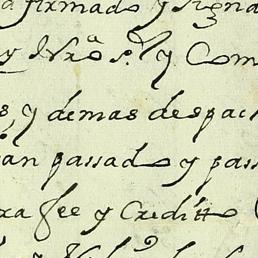 a firmado y signa
y Nrōs.r y Com
s, y demas despac
an passado y pass
ra fee y Creditto